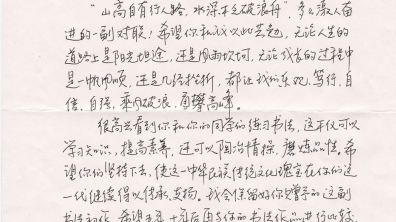 “山高自有行人路，水深不乏破浪舟”，多么激人奋
进的一副对联！希望你和我以此共勉，无论人生的
道路上是阳光坦途，还是风雨坎坷，无论成长的过程中
是一帆风顺，还是几经挫折，都让我们乐观、笃行、自
信、自强，乘风破浪，勇攀高峰。
很高兴看到你和你的同学们练习书法，这不仅可以
学习知识，提高素养，还可以陶冶情操，磨炼品性。希
望你们坚持下去，使这一中华民族传统文化瑰宝在你们这
一代继续得以传承、发扬。我会保留好你书写的这副
希望